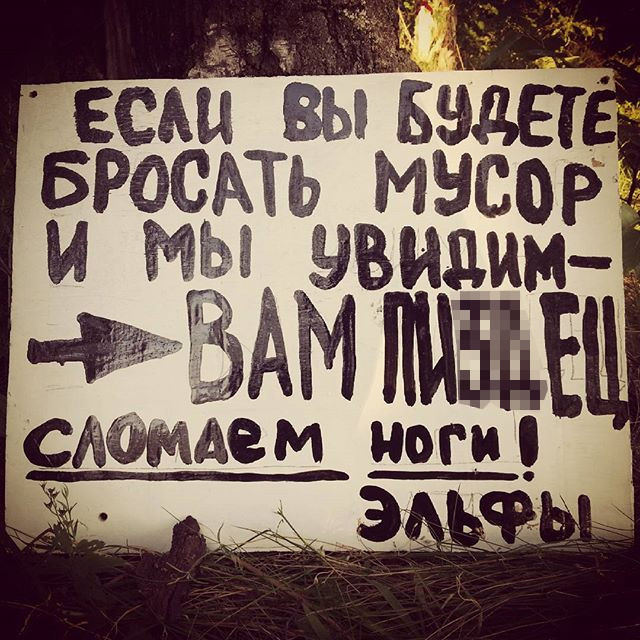 ЕСЛИ ВЫ БУДЕТЕ
БРОСАТЬ МУСОР
И МЫ УВИДИМ-
ВАМ
СЛОМАЕМ НОГИ!
ЭЛЬФЫ